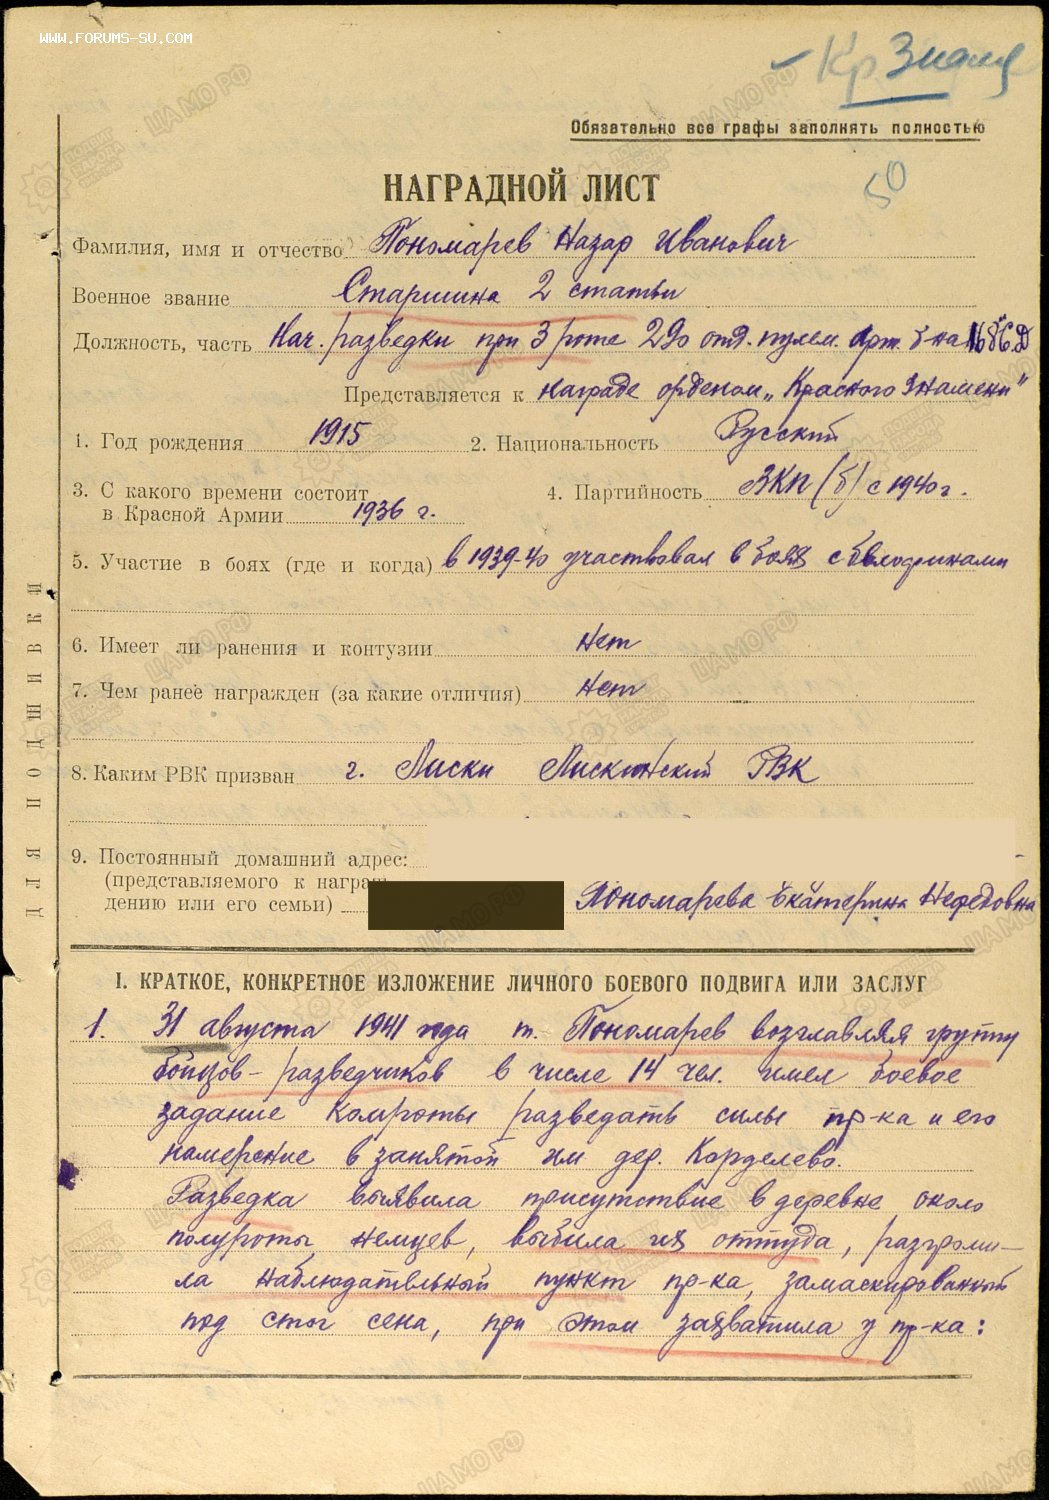 WWW.FORUMS-SU.COM
Кр Знамя
Обязательно все графы заполнять полностью
50
НАГРАДНОЙ ЛИСТ
Фамилия, имя и отчество Пономарев Назар Иванович
Военное звание Старшина 2 статьи
Должность, часть Нач. разведки при 3 роте 290 отд. пулем. арт. б-на
Представляется к награде орденом „Красного Знамени"
1. Год рождения 1915 2. Национальность Русский
3. С какого времени состоит 4. Партийность ВКП(б) с 1940 г.
в Красной Армии 1936 г.
5. Участие в боях (где и когда) в 1939-40 участвовал в боях с белофинами
6. Имеет ли ранения и контузии Нет
7. Чем ранее награжден (за какие отличия) Нет
8. Каким РВК призван г. Лиски Лискинский РВК
9. Постоянный домашний адрес:
(представляемого к награж-
дению или его семьи) Пономарева Екатерина Нефедовна
ДЛЯ ПОДШИВКИ
I. КРАТКОЕ, КОНКРЕТНОЕ ИЗЛОЖЕНИЕ ЛИЧНОГО БОЕВОГО ПОДВИГА ИЛИ ЗАСЛУГ
1. 31 августа 1941 года т. Пономарев возглавляя группу
бойцов-разведчиков в числе 14 чел. имел боевое
задание комроты разведать силы пр-ка и его
намерение в занятой им дер. Корделево.
Разведка выявила присутствие в деревне около
полуроты немцев, выбила их оттуда, разгроми-
ла наблюдательный пункт пр-ка, замаскированный
под стог сена, при этом захватила у пр-ка:
ЦА МО РФ